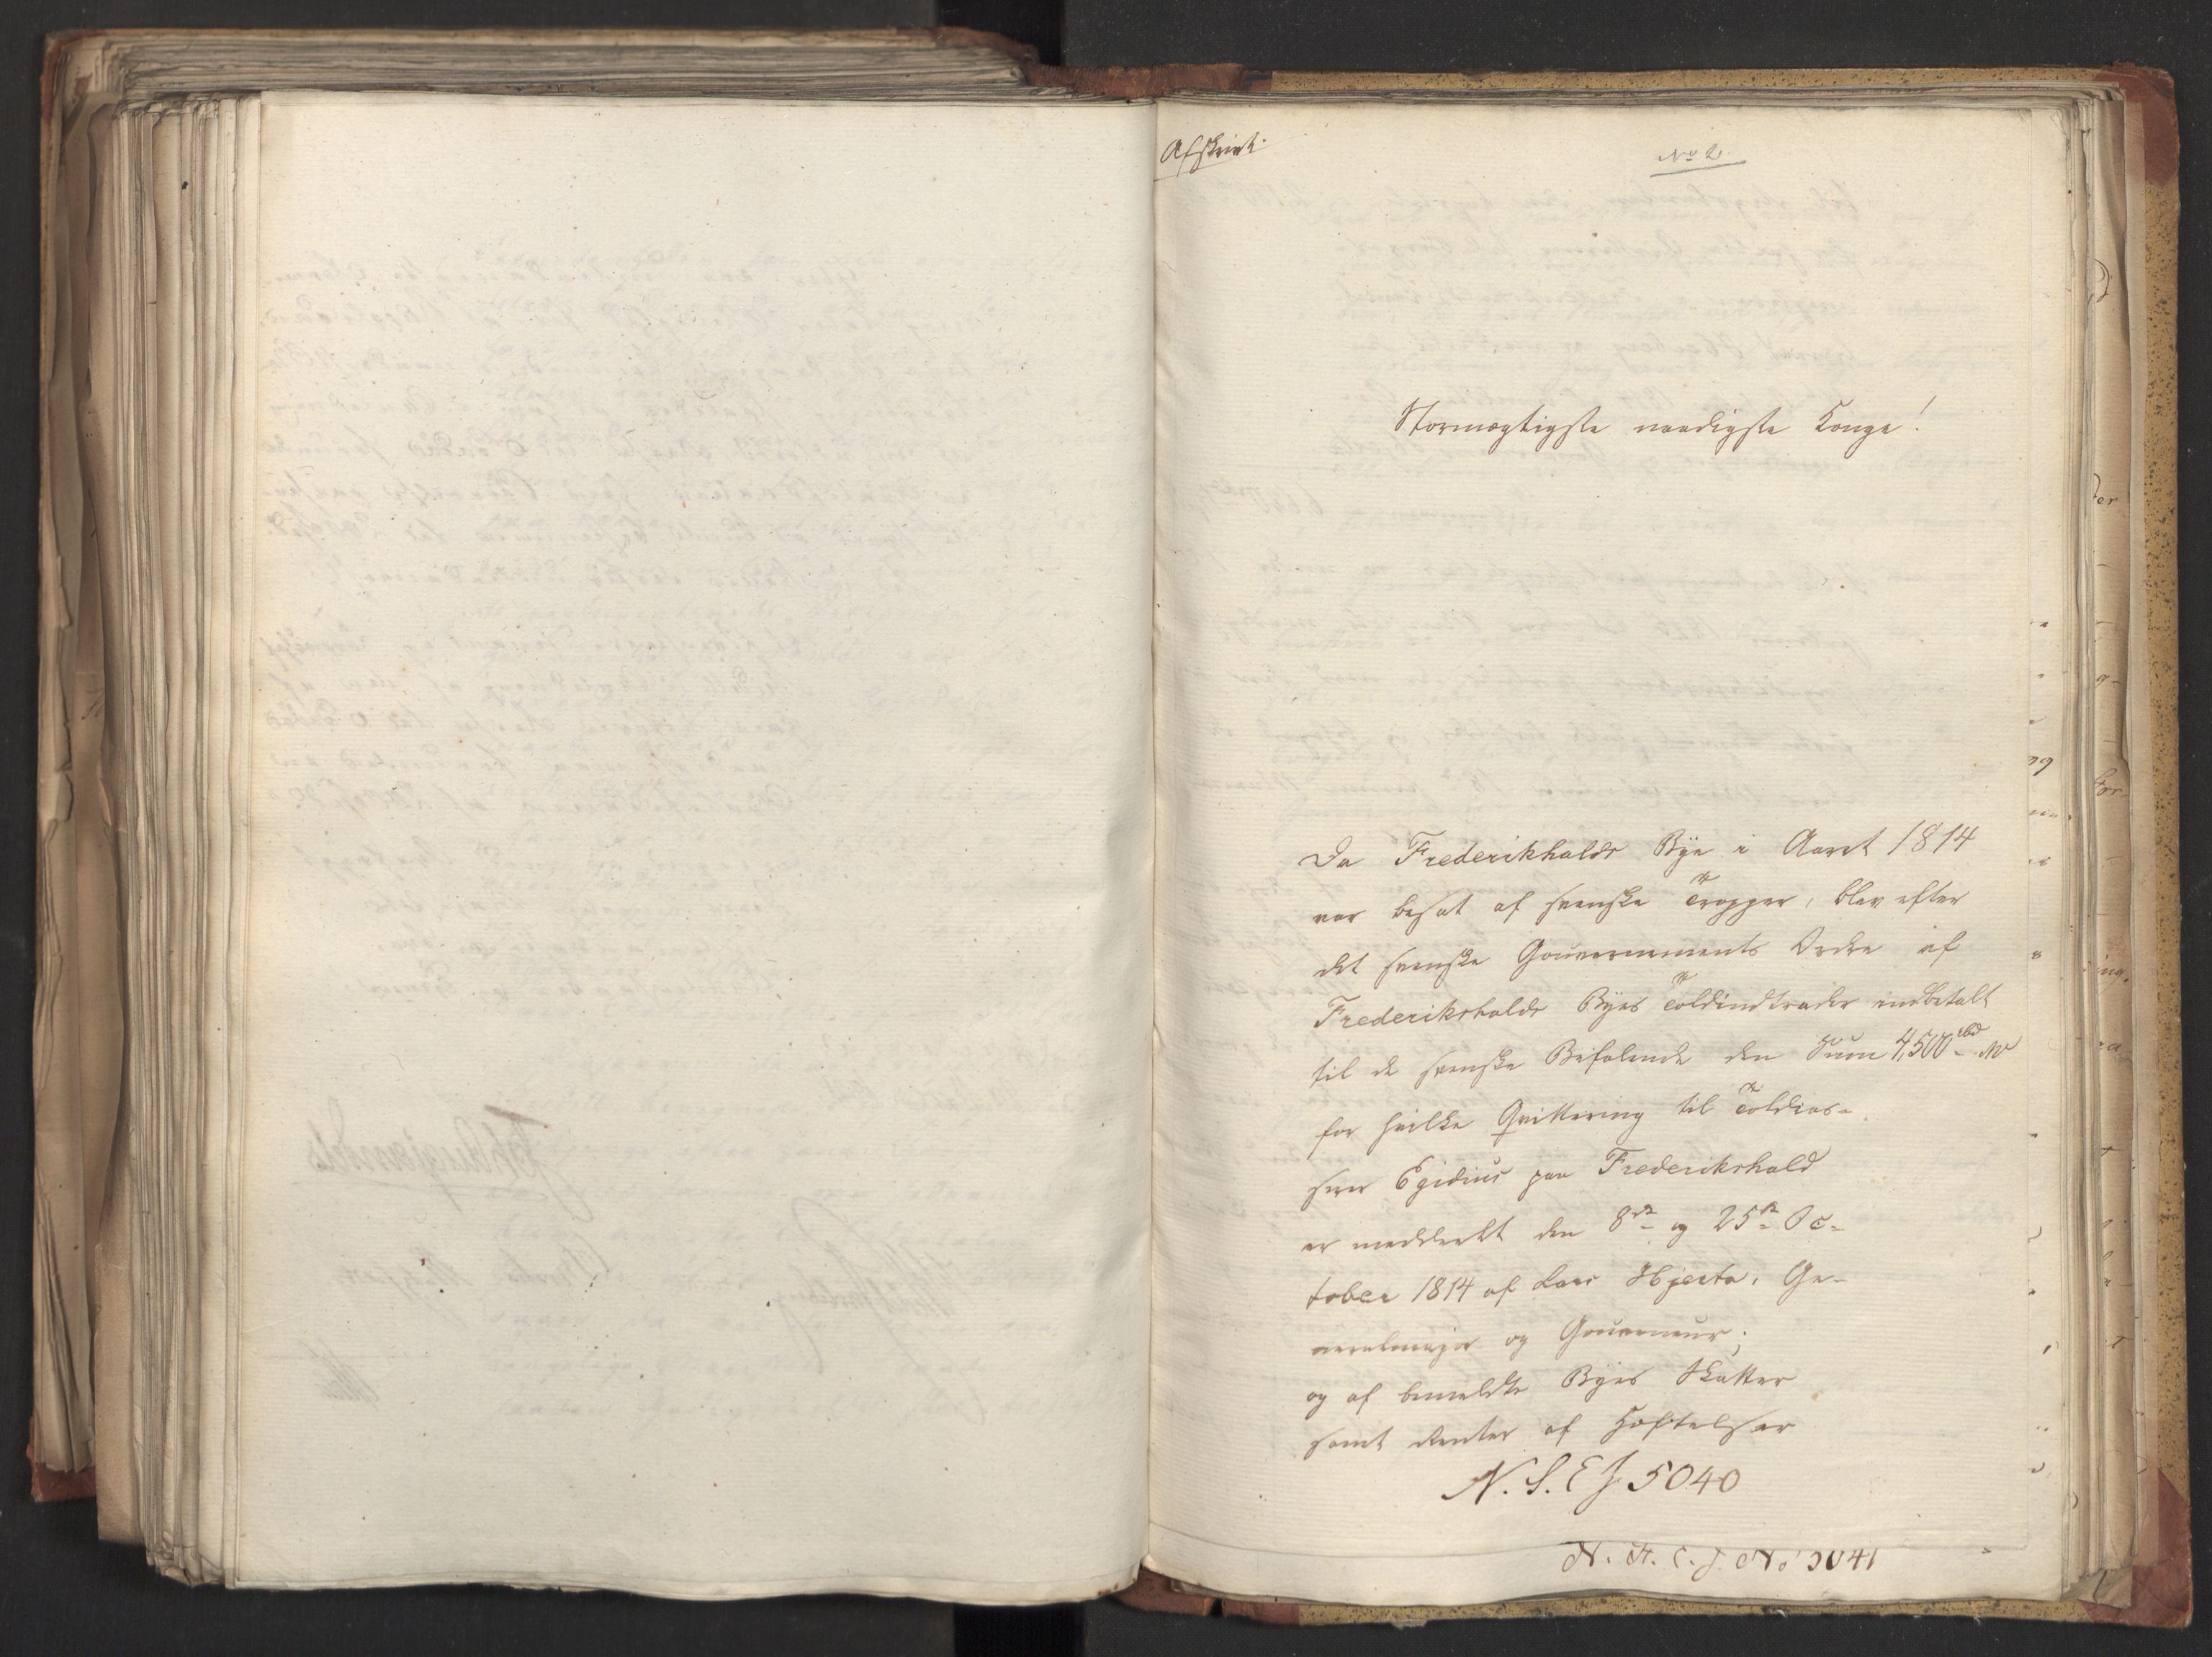 Afskrivt.
No 2.
Stormægtigste naadigste Konge!
Da Frederikhalds Bÿe i Aaret 1814
var besat af svenske Tropper, blev efter
det svenske Gouvernements Ordre af
Frederikshalds Bÿes Toldindtrader indbetalt
til de svenske Befalende den Sum 4,500 rbd NV
for hvilke Qvittering til Toldcas-
serer Egidius paa Frederikshald
er meddeelt den 8de og 25de Oc-
tober 1814 af Lars Hjerta, Ge-
neralmajor og Gouverneur;
og af bemeldte Bÿes Skatter
samt Renter af Hæftelser
N. S. E J 5040
N. A. C. J. No 5041